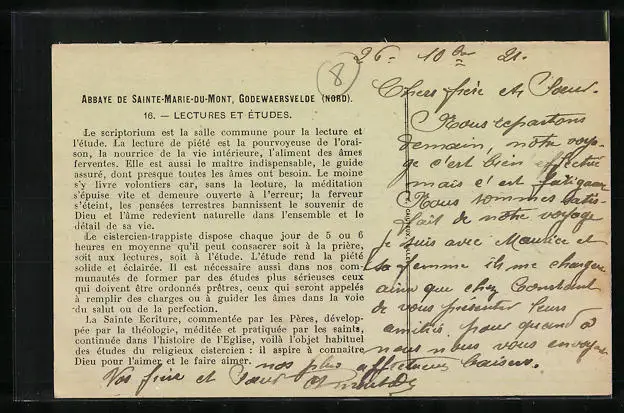 8
26 10bre 21.
ABBAYE DE SAINTE-MARIE-DU-MONT, GODEWAERSVELDE (NORD).
16. — LECTURES ET ÉTUDES.
Le scriptorium est la salle commune pour la lecture et
l'étude. La lecture de piété est la pourvoyeuse de l'orai-
son, la nourrice de la vie intérieure, l'aliment des âmes
ferventes. Elle est aussi le maître indispensable, le guide
assuré, dont presque toutes les âmes ont besoin. Le moine
s'y livre volontiers car, sans la lecture, la méditation
s'épuise vite et demeure ouverte à l'erreur; la ferveur
s'éteint, les pensées terrestres bannissent le souvenir de
Dieu et l'âme redevient naturelle dans l'ensemble et le
détail de sa vie.
Le cistercien-trappiste dispose chaque jour de 5 ou 6
heures en moyenne qu'il peut consacrer soit à la prière,
soit aux lectures, soit à l'étude. L'étude rend la piété
solide et éclairée. Il est nécessaire aussi dans nos com-
munautés de former par des études plus sérieuses ceux
qui doivent être ordonnés prêtres, ceux qui seront appelés
à remplir des charges ou à guider les âmes dans la voie
du salut ou de la perfection.
La Sainte Ecriture, commentée par les Pères, dévelop-
pée par la théologie, méditée et pratiquée par les saints,
continuée dans l'histoire de l'Eglise, voilà l'objet habituel
des études du religieux cistercien : il aspire à connaître
Dieu pour l'aimer et le faire aimer.
Chers frère et Sœur.
Nous repartons
demain, notre voya-
ge c'est bien effectué
mais c'est fatigant
Nous sommes satis-
fait de notre voyage
je suis avec Maurice et
sa femme ils me charge
ainsi que chez Constant
de vous présenter leurs
amitiés pour quand à
nous nous vous envoyons
nos plus affectueux baisers.
Vos frère et Sœur